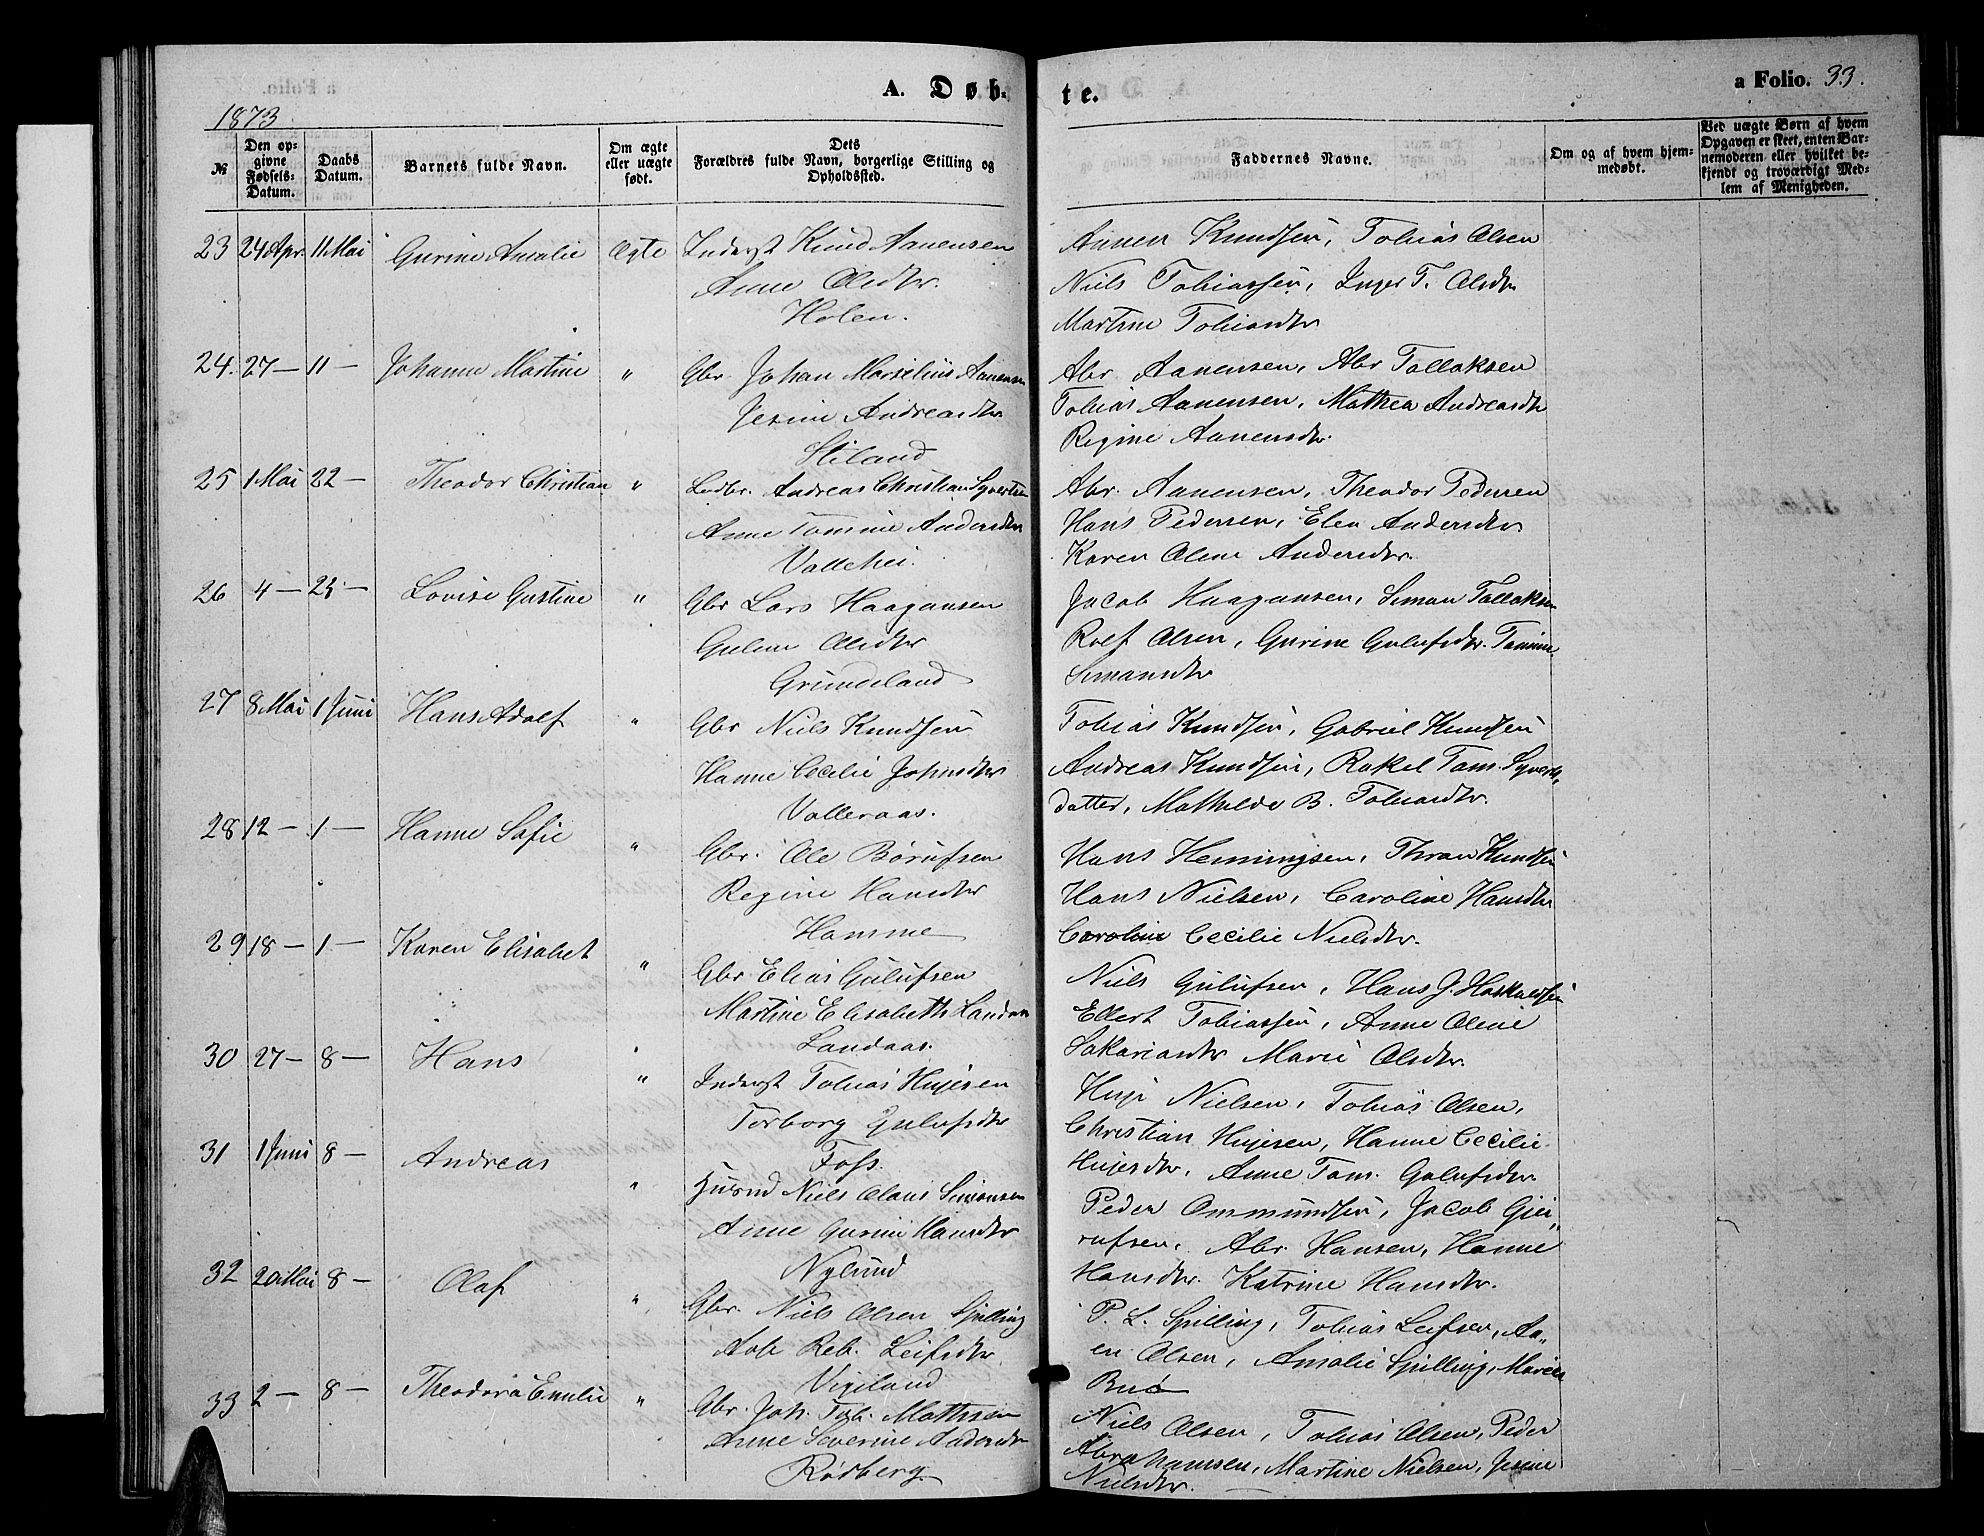 A. Døb-
te.
a Folio. 33.
1873
№
Den op-
givne
Fødsels-
Datum.
Daabs
Datum.
Barnets fulde Navn.
Om ægte
eller uægte
født.
Dets
Forældres fulde Navn, borgerlige Stilling og
Opholdssted.
Faddernes Navne.
Om og af hvem hjem-
medøbt.
Ved uægte Børn af hvem
Opgaven er skeet, enten Bar-
nemoderen eller hvilket be-
kjendt og troværdigt Med-
lem af Menigheden.
23 24 Apr. 11 Mai Gurine Amalie Ægte Inderst Knud Aanensen
Anne Olsdtr.
Holen.
Aanen Knudsen, Tobias Olsen
Niels Tobiassen, Inger T. Olsdtr
Martine Tobiasdtr
24. 27 — 11 — Johanne Martine " Gbr. Johan Marselius Aanensen
Jesine Andreasdtr
Stiland
Abr. Aanensen, Abr Tallaksen
Tobias Aanensen, Mathea Andreasdtr
Regine Aanensdtr.
25 1 Mai 22 — Theodor Christian " Andreas Christian Syvertsen
Anne Tomine Andersdtr
Vallehei.
Abr. Aanensen, Theodor Pedersen
Hans Pedersen, Elen Andersdtr
Karen Oline Andersdtr.
26 4 — 25 — Lovise Gustine " Gbr Lars Haagensen
Gulene Olsdtr
Grundeland
Jacob Haagensen, Simon Tallaksen
Rolf Olsen, Gurine Gulufsdtr. Tomine
Simonsdtr
27 8 Mai 1 Juni Hans Adolf " Gbr Niels Knudsen
Hanne Cecilie Johnsdtr
Valleraas.
Tobias Knudsen, Gabriel Knudsen
Andreas Knudsen, Rakel Tom. Syverts
datter, Mathilde B. Tobiasdtr.
28 12 — 1 — Hanne Sofie " Gbr. Ole Børufsen
Regine Hansdtr
Homme
Hans Hemmingsen, Thron Knudsen
Hans Nielsen, Caroline Hansdtr
Caroline Cecilie Nielsdtr.
29 18 — 1 — Karen Elisabet " Gbr Elias Gulufsen
Martine Elisabeth Landaas
Landaas.
Niels Gulufsen, Hans J. Haskaldsen
Ellert Tobiassen, Anne Oline
Sakariasdtr Marie Olsdtr.
30 27 — 8 — Hans " Inderst Tobias Hujesen
Torborg Gulufsdtr
Foss.
Huje Nielsen, Tobias Olsen,
Christian Hujesen, Hanne Cecilie
Hujesdtr, Anne Tom. Gulufsdtr
31 1 Juni 8 — Andreas " Husmd Niels Olaus Simonsen
Anne Gurine Hansdtr
Nylund
Peder Ommundsen, Jacob Gjer
rufsen, Abr. Hansen, Hanne
Hansdtr. Katrine Hansdtr.
32 20 Mai 8 — Olaf " Gbr. Niels Olsen Spilling
Aase Reb. Leifsdtr
Vigeland
P. L. Spilling, Tobias Leifsen, Aa-
en Olsen, Amalie Spilling, Maren
Buø
33 2 — 8 — Theodora Emilie " Gbr. Joh. Tob. Mathisen
Anne Severine Andersdtr
Rødberg
Niels Olsen, Tobias Olsen, Peder
Abrahamsen, Martine Nielsen, Jesine
Nielsdtr.